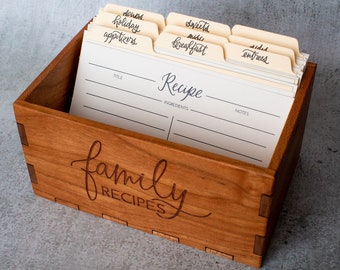 desserts
sweets
holiday
sides
appetizers
breakfast
entrees
Recipe
TITLE
NOTES
INGREDIENTS
family
RECIPES